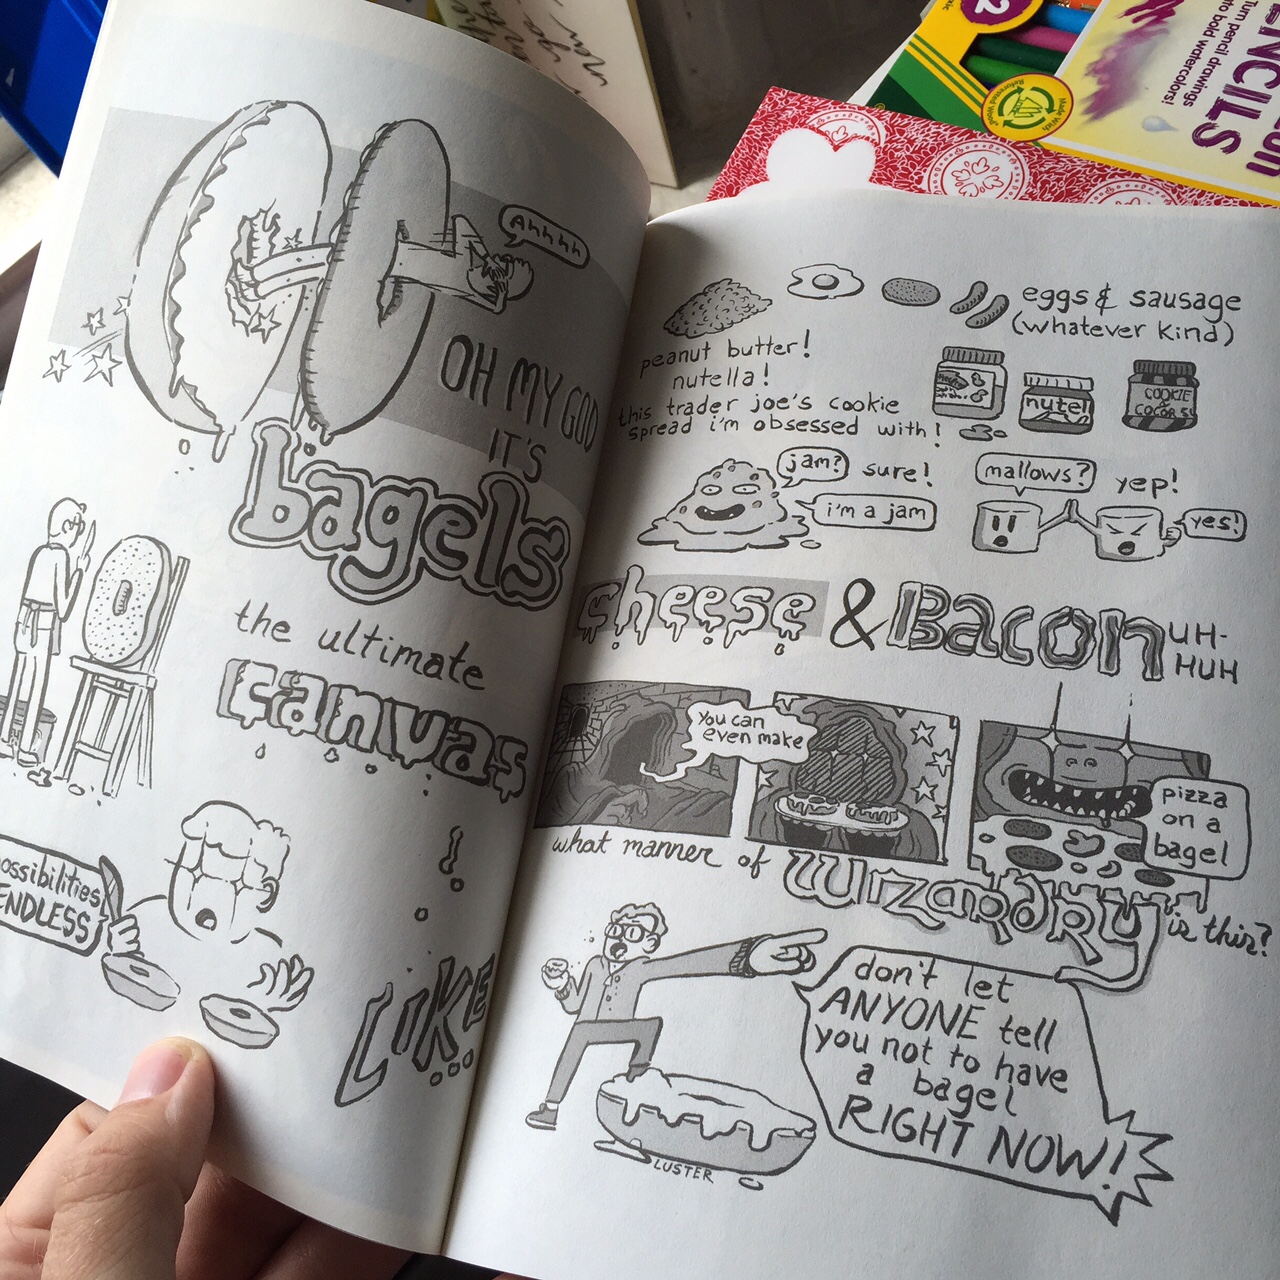 Ahhhh
OH MY GOD
IT'S
bagels
the ultimate
canvas
possibilities
ENDLESS
!
LIKE
eggs & sausage
(whatever kind)
peanut butter!
nutella!
this trader joe's cookie
spread i'm obsessed with!
nutel
COOKIE
&
COCOA S
jam?
sure!
i'm a jam
mallows?
yep!
yes!
cheese & Bacon
UH-
HUH
You can
even make
pizza
on a
bagel
what manner of Wizardry is this?
don't let
ANYONE tell
you not to have
a bagel
RIGHT NOW!
LUSTER
NCILS
Turn pencil drawings
to bold watercolors!
Made With
Reforested Wood
2